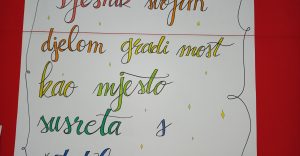 Pjesnik svojim
djelom gradi most
kao mjesto
susreta s